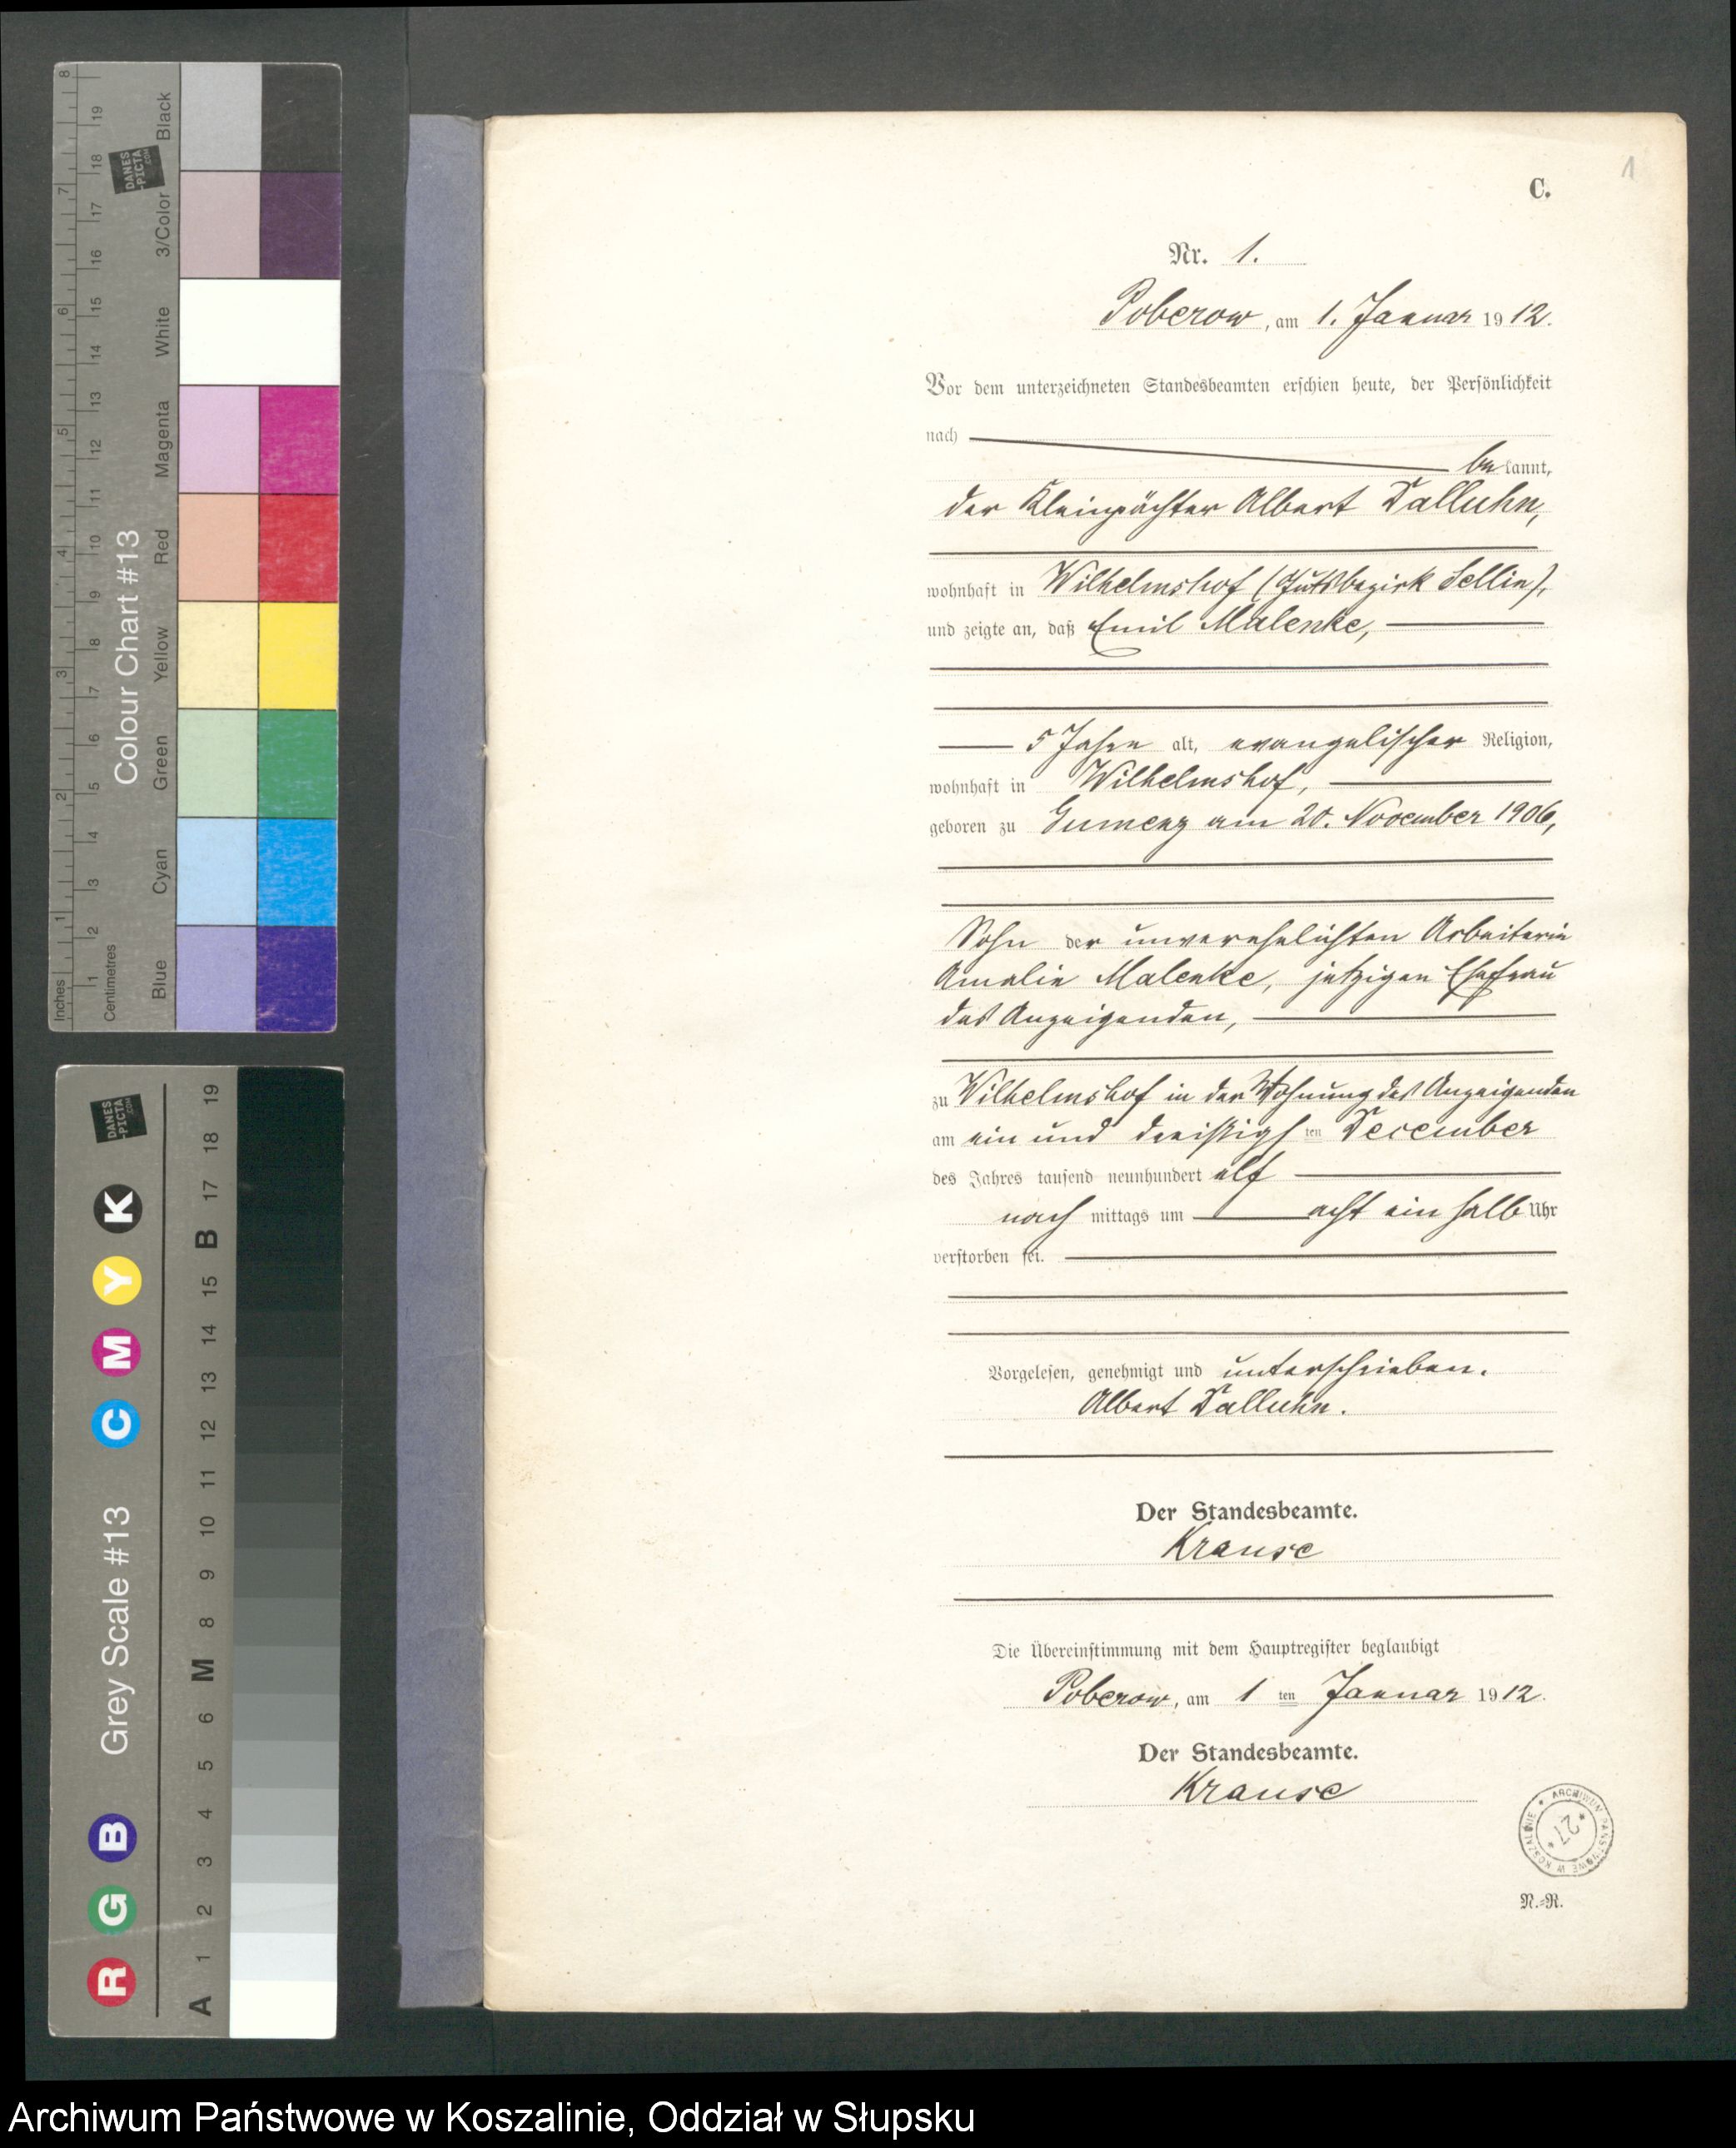 1
C.
Nr. 1.
Poberow, am 1. Januar 1912.
Vor dem unterzeichneten Standesbeamten erschien heute, der Persönlichkeit
nach
be kannt,
der Kleinpächter Albert Dalluhn,
wohnhaft in Wilhelmshof (Gutsbezirk Sellin),
und zeigte an, daß Emil Malenke,
5 Jahre alt, evangelischer Religion,
wohnhaft in Wilhelmshof,
geboren zu Gumenz am 20. November 1906,
Sohn der unverehelichten Arbeiterin
Amalie Malenke, jetzigen Ehefrau
des Anzeigenden,
zu Wilhelmshof in der Wohnung des Anzeigenden
am ein und dreißigs ten December
des Jahres tausend neunhundert elf
nach mittags um acht ein halb Uhr
verstorben sei.
Vorgelesen, genehmigt und unterschrieben.
Albert Dalluhn.
Der Standesbeamte.
Krause
Die Übereinstimmung mit dem Hauptregister beglaubigt
Poberow, am 1 ten Januar 1912.
Der Standesbeamte.
Krause
* ARCHIWUM PAŃSTWOWE W KOSZALINIE
* 27 *
N.=R.
Inches 1 2 3 4 5 6 7 8
Centimetres 1 2 3 4 5 6 7 8 9 10 11 12 13 14 15 16 17 18 19
Colour Chart #13
DANES
-PICTA
.COM
Blue Cyan Green Yellow Red Magenta White 3/Color Black
DANES
-PICTA
.COM
Grey Scale #13
R G B C M Y K
A 1 2 3 4 5 6 M 8 9 10 11 12 13 14 15 B 17 18 19
Archiwum Państwowe w Koszalinie, Oddział w Słupsku